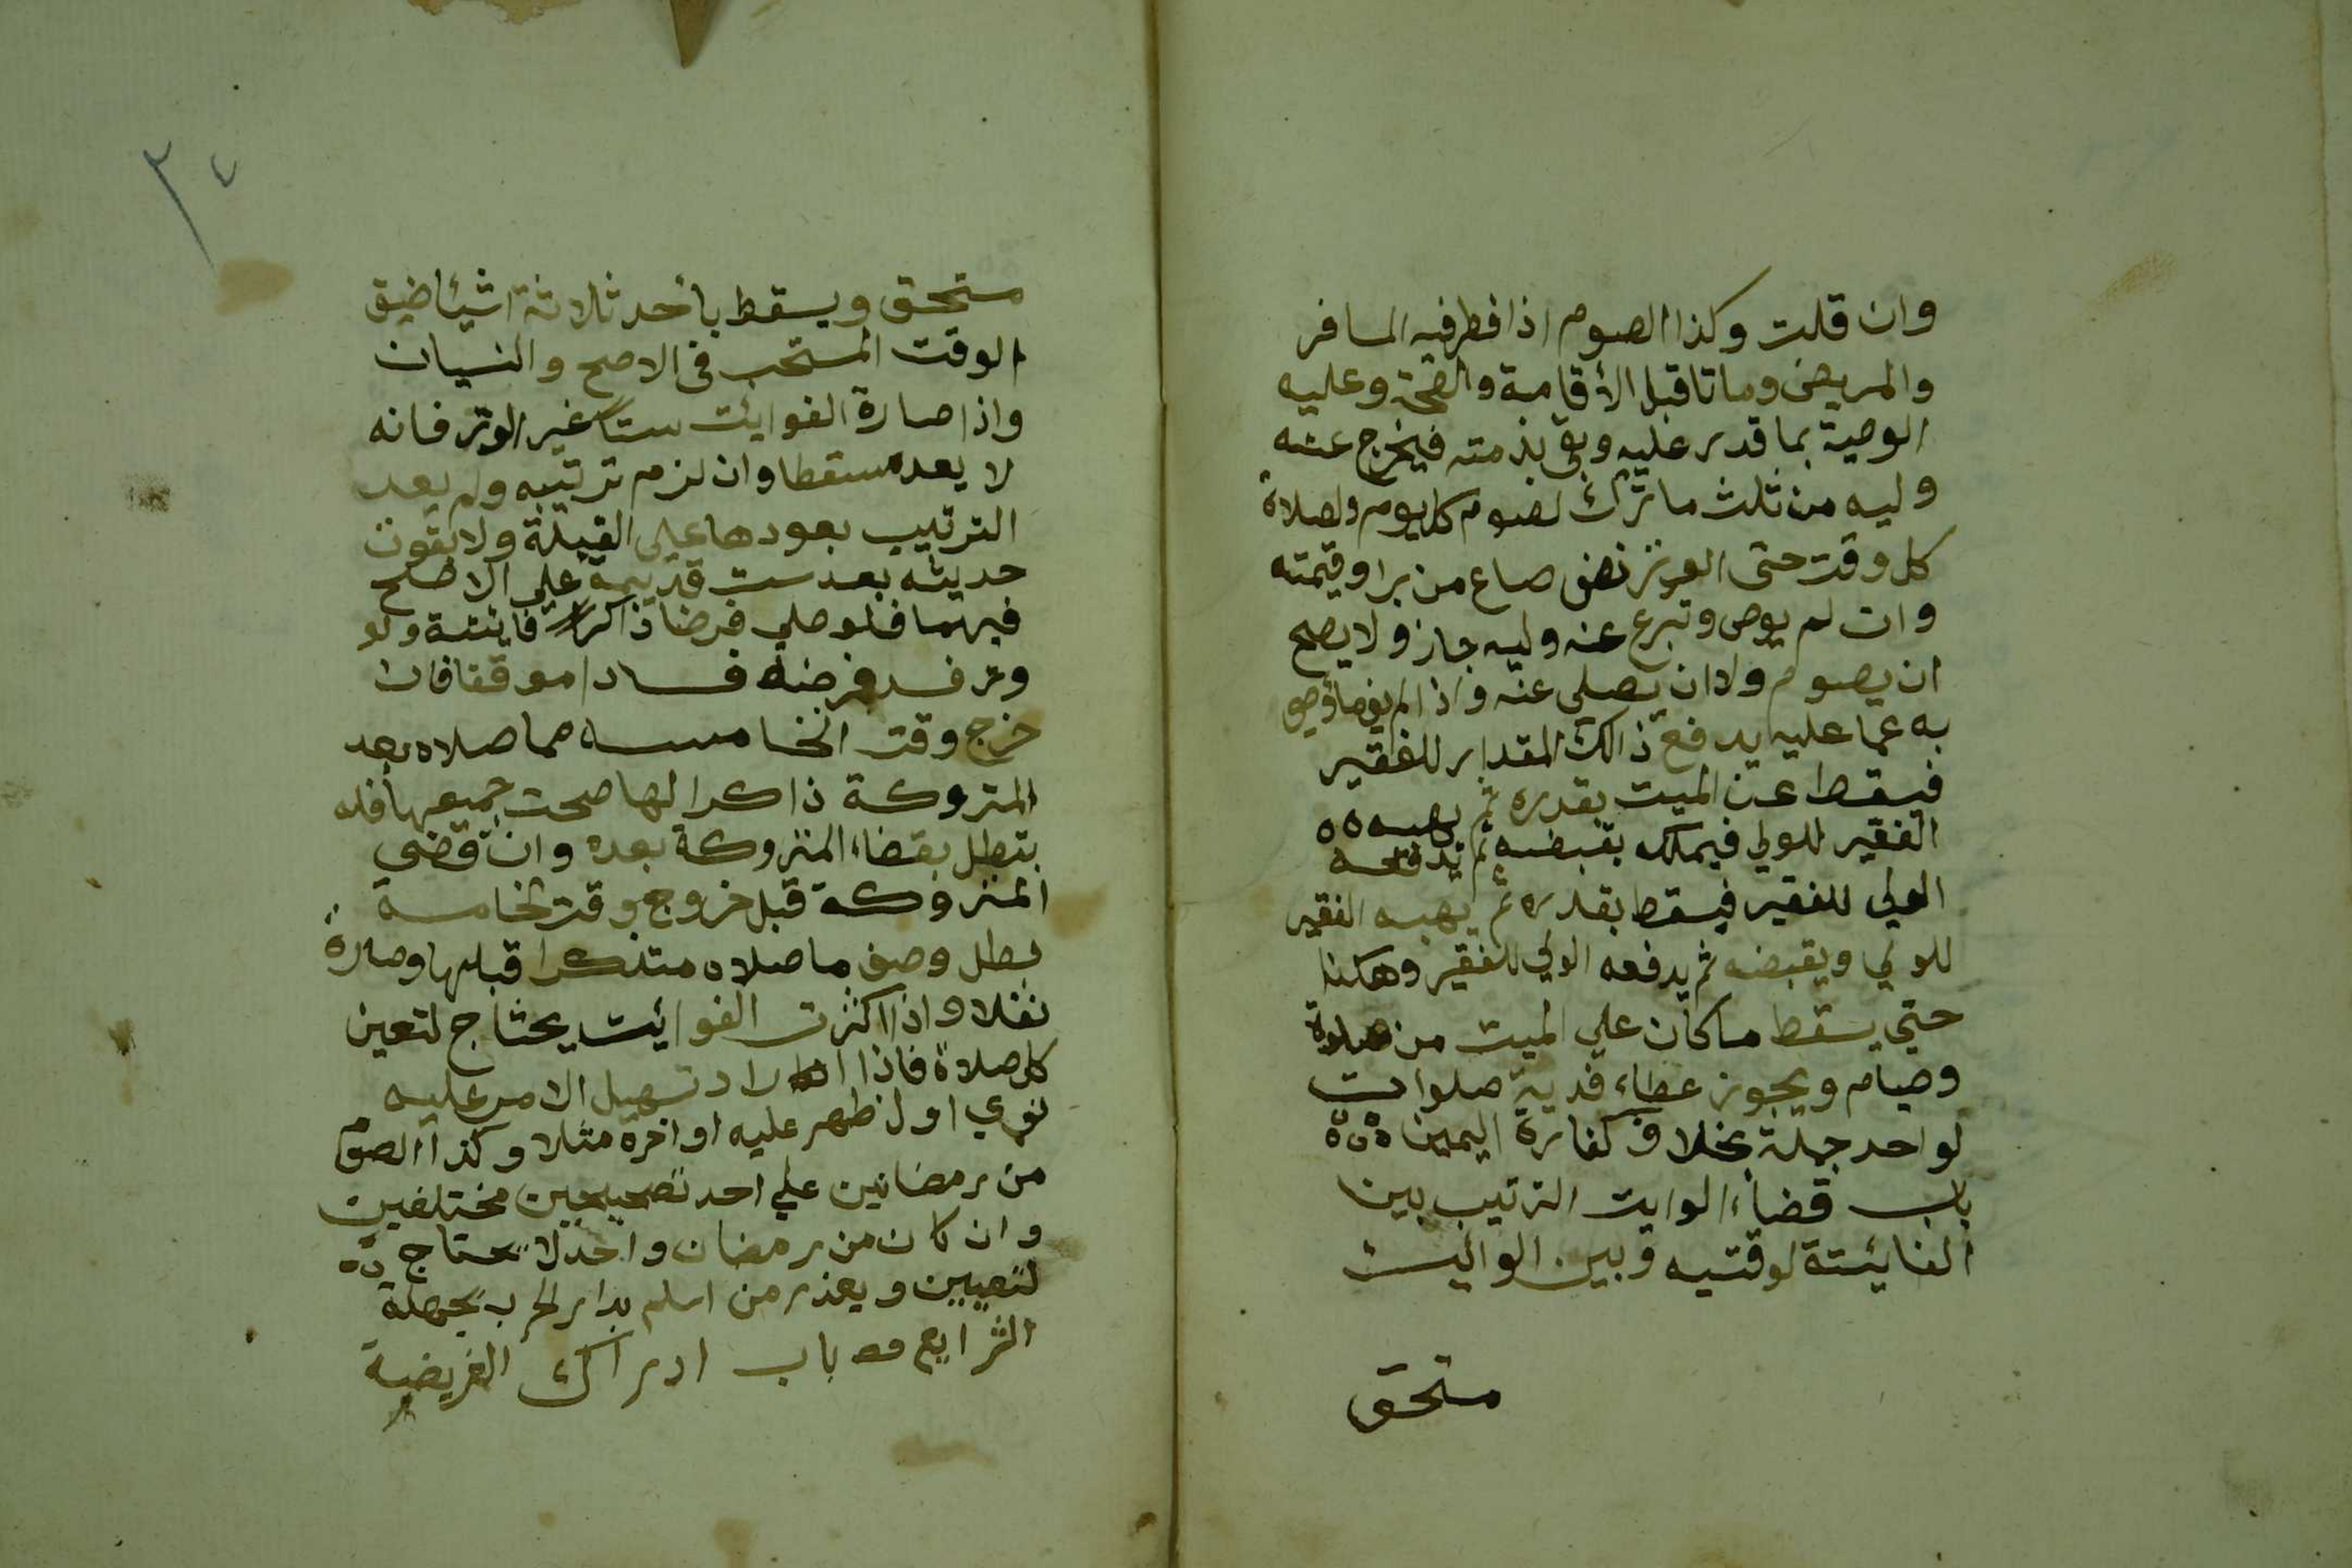 وان قلت وكذا الصوم اذا فطر فيه المسافر
والمريض وماتا قبل الأقامة والصحة وعليه
الوصية بما قدر عليه وبقى بذمته فيخرج عنه
وليه من ثلث ما ترك لصوم كل يوم ولصلاة
كل وقت حتى الوتر نصف صاع من برا وقيمته
وان لم يوص وتبرع عنه وليه جاز ولا يصح
ان يصوم ولا ان يصلى عنه واذا لم يف ما أوصى
به عما عليه يدفع ذالك المقدار للفقير
فيسقط عن الميت بقدره ثم يهبه ٥٥
الفقير للولي فيملك بقبضه ثم يدفعه
الولي للفقير فيسقط بقدره ثم يهبه الفقير
للولي ويقبضه ثم يدفعه الولي للفقير وهكذا
حتي يسقط ما كان علي الميت من صلوة
وصيام ويجوز عطاء فدية صلوات
لواحد جملة بخلاف كفارة اليمين ٥٥٥
باب قضاء الوايت الترتيب بين
الفايئتة لوقتيه وبين الوائيت
مستحق
٣٤
مستحق ويسقط بأحد ثلاثة اشيئا ضيق
الوقت المستحب فى الاصح والنسيان
واذا صارة الفوايئت ستا غير الوتر فانه
لا يعد مسقطا وان لزم ترتيبه ولم يعد
الترتيب بعودها علي القبلة ولا بقوت
حديثه بعد ست قديمة علي الاصح
فيهما فلو صلي فرضا ذاكرا فايتتة ولو
وتر فسد فرضه فسادا موقفا فان
خرج وقت الخامسه مما صلاه بعد
المتروكة ذاكرا لها صحت جميعها فله
بتطل بقضاء المتروكة بعده وان قضي
المتروكة قبل خروج وقت الخامسة
بطل وصف ما صلاه متذكرا قبلها وصارة
نفلا واذا اكثرت الفوايئت يحتاج لتعين
كل صلاة فاذا اراد تسهيل الامر عليه
نوي اول ظهر عليه او اخره مثلا وكذا الصوم
من رمضانين علي احد تصحيحين مختلفين
وان كان من رمضان واحد لا يحتاج
لتعيين ويعذر من اسلم بدار الحرب بجهلة
الشرايع باب ادراك الفريضية